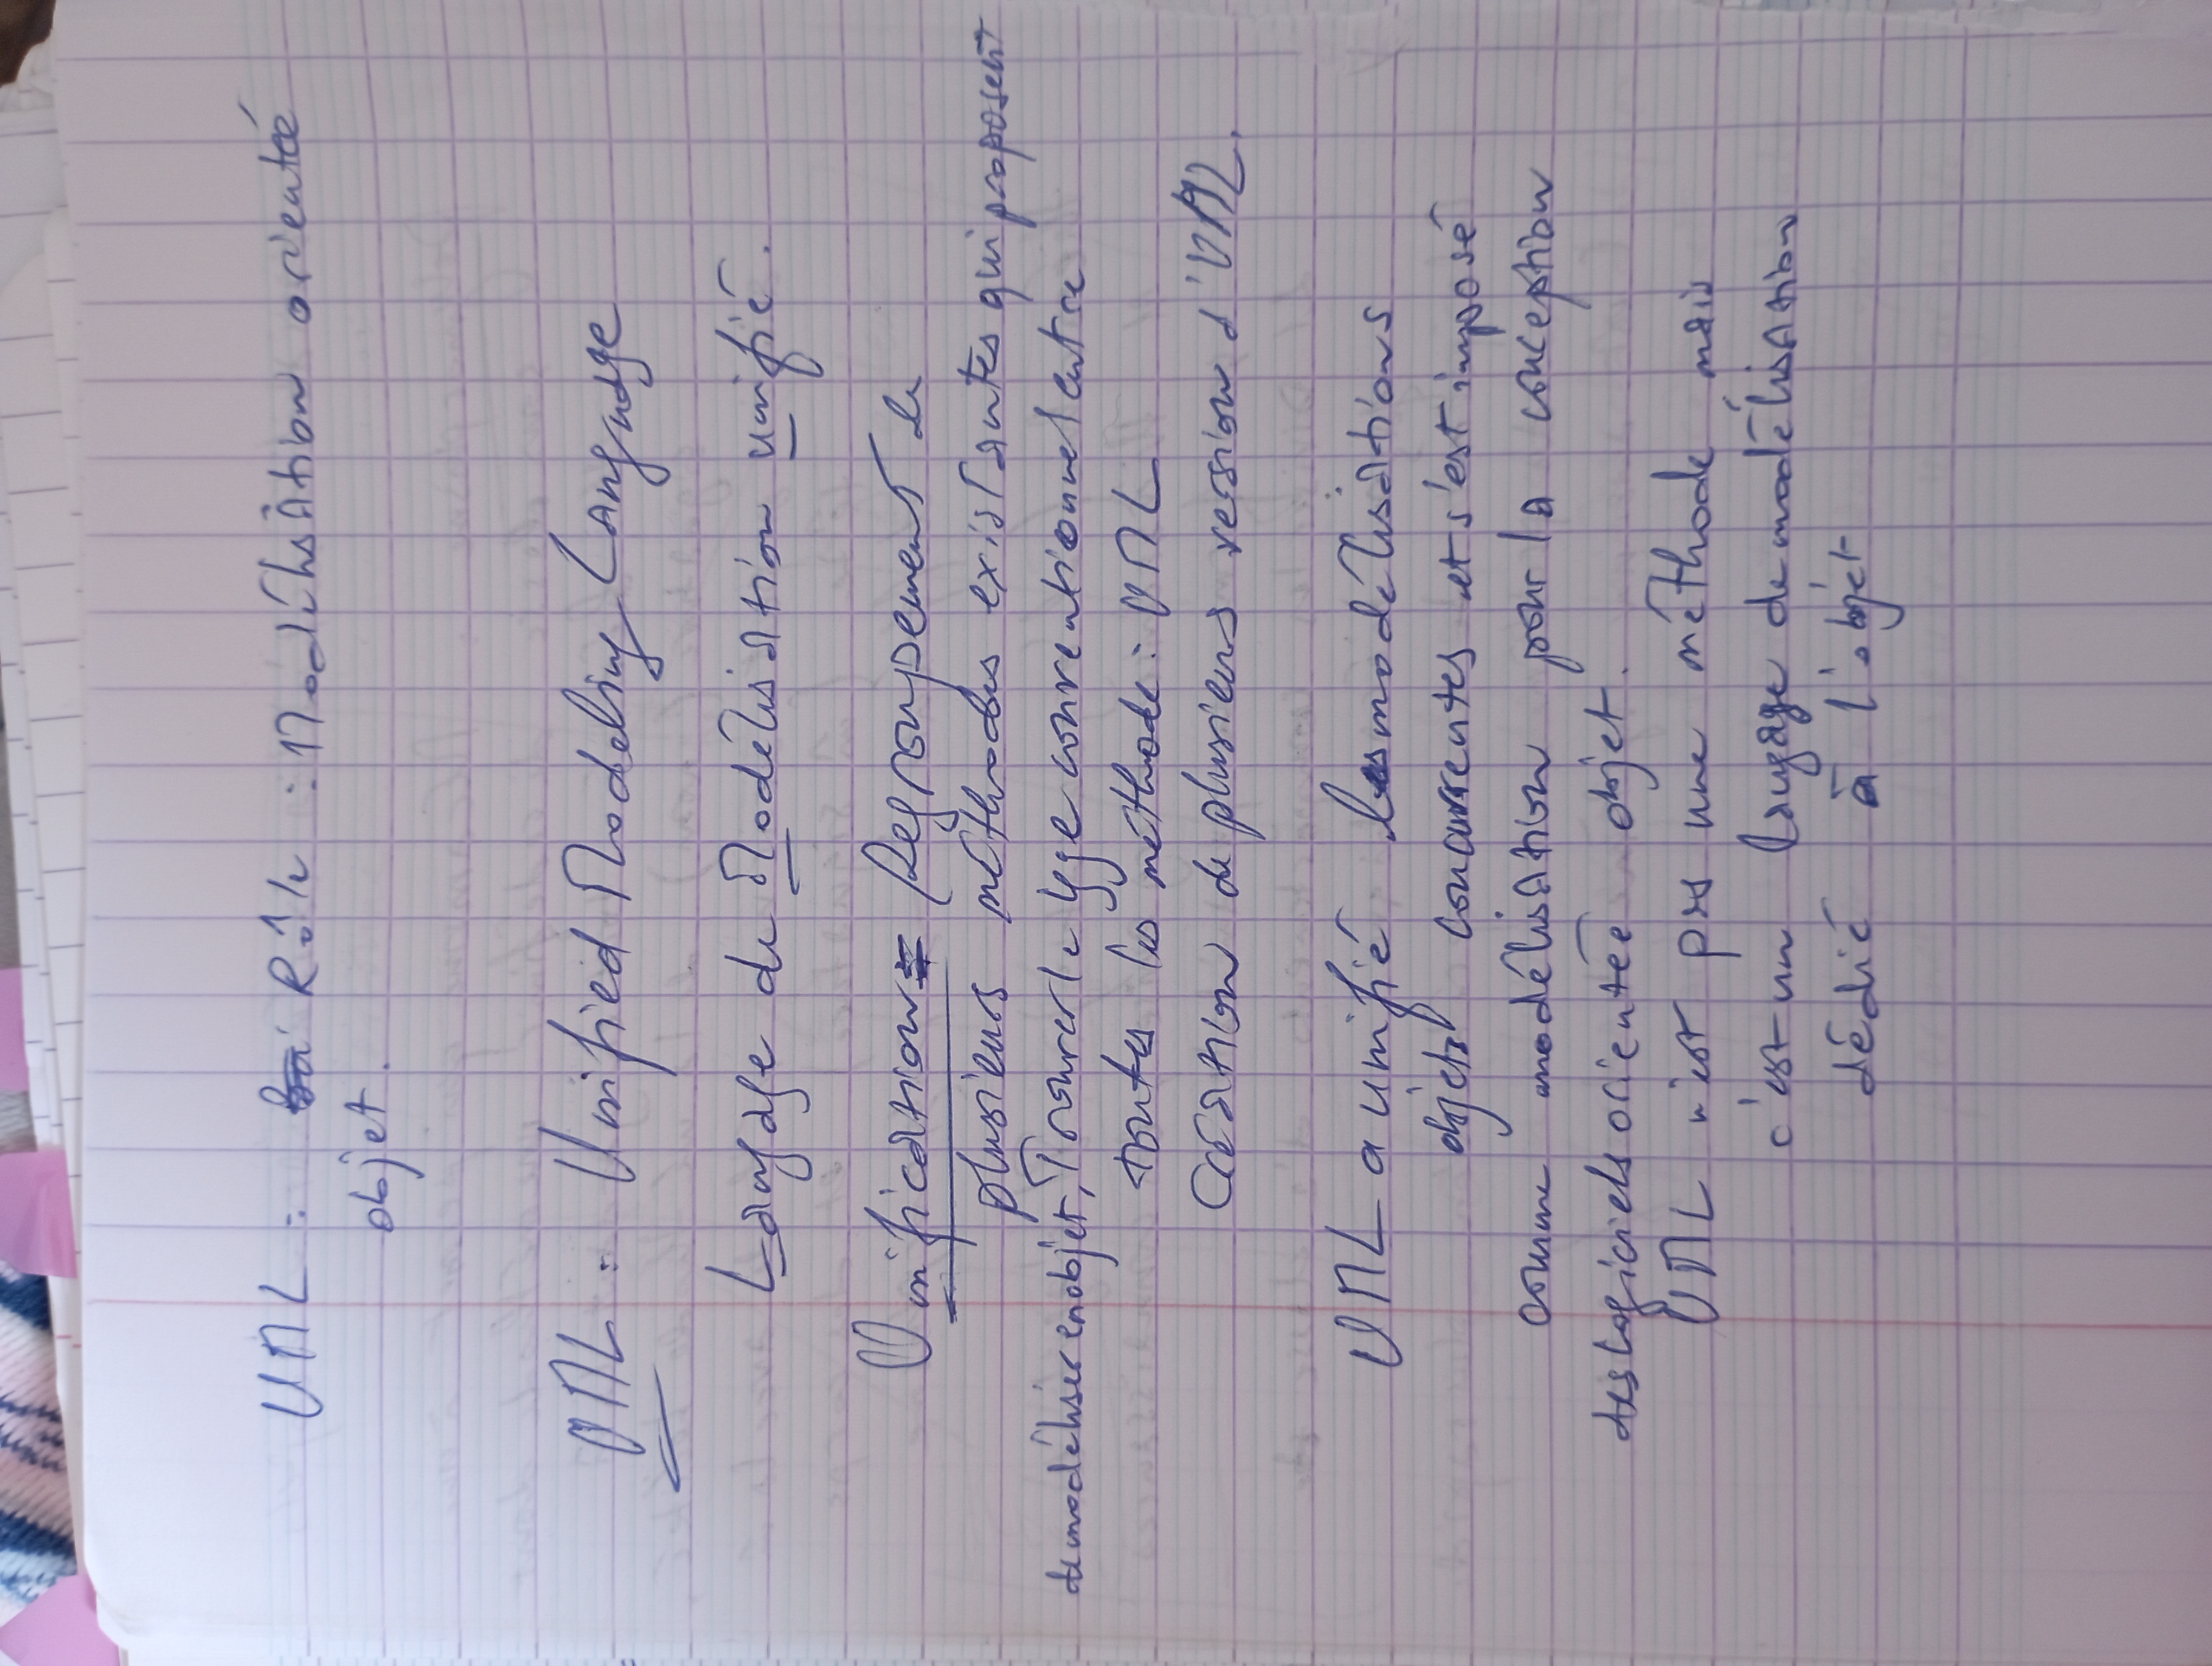 UML : Rôle : Modélisation orienteé
objet.
UML : Unified Modeling Language
Langage de Modélisation unifié.
Unification = Regroupement de
plusieurs méthodes existantes qui proposent
de modéliser en objet, Trouver le conventionnel entre
toutes les méthode : UML
Création de plusieurs version d'UML.
UML a unifié les modélisations
objets concurrentes et s'est imposé
comme modélisation pour la conception
des logiciels orienteé objet.
UML n'est pas une méthode mais
c'est un langage de modélisation
dédié à l'objet